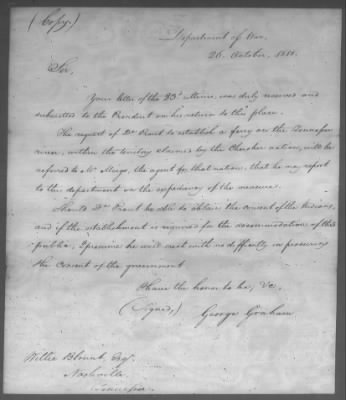 (Copy.)
Department of War,
26. October, 1816.
Sir,
Your letter of the 23d ultimo, was duly received and
submitted to the President on his return to this place.
The request of Dr Brant to establish a ferry on the Tennessee
river, within the territory claimed by the Cherokee nation, will be
referred to Mr Meigs, the agent for that nation, that he may report
to the department on the expediency of the measure.
Should Dr Brant be able to obtain the consent of the Indians,
and if the establishment is required for the accommodation of the
public, I presume he will meet with no difficulty in procuring
the consent of the government
I have the honor to be, &c.
(Signed,)
George Graham
Willie Blount, Esqr.
Nashville
Tennessee